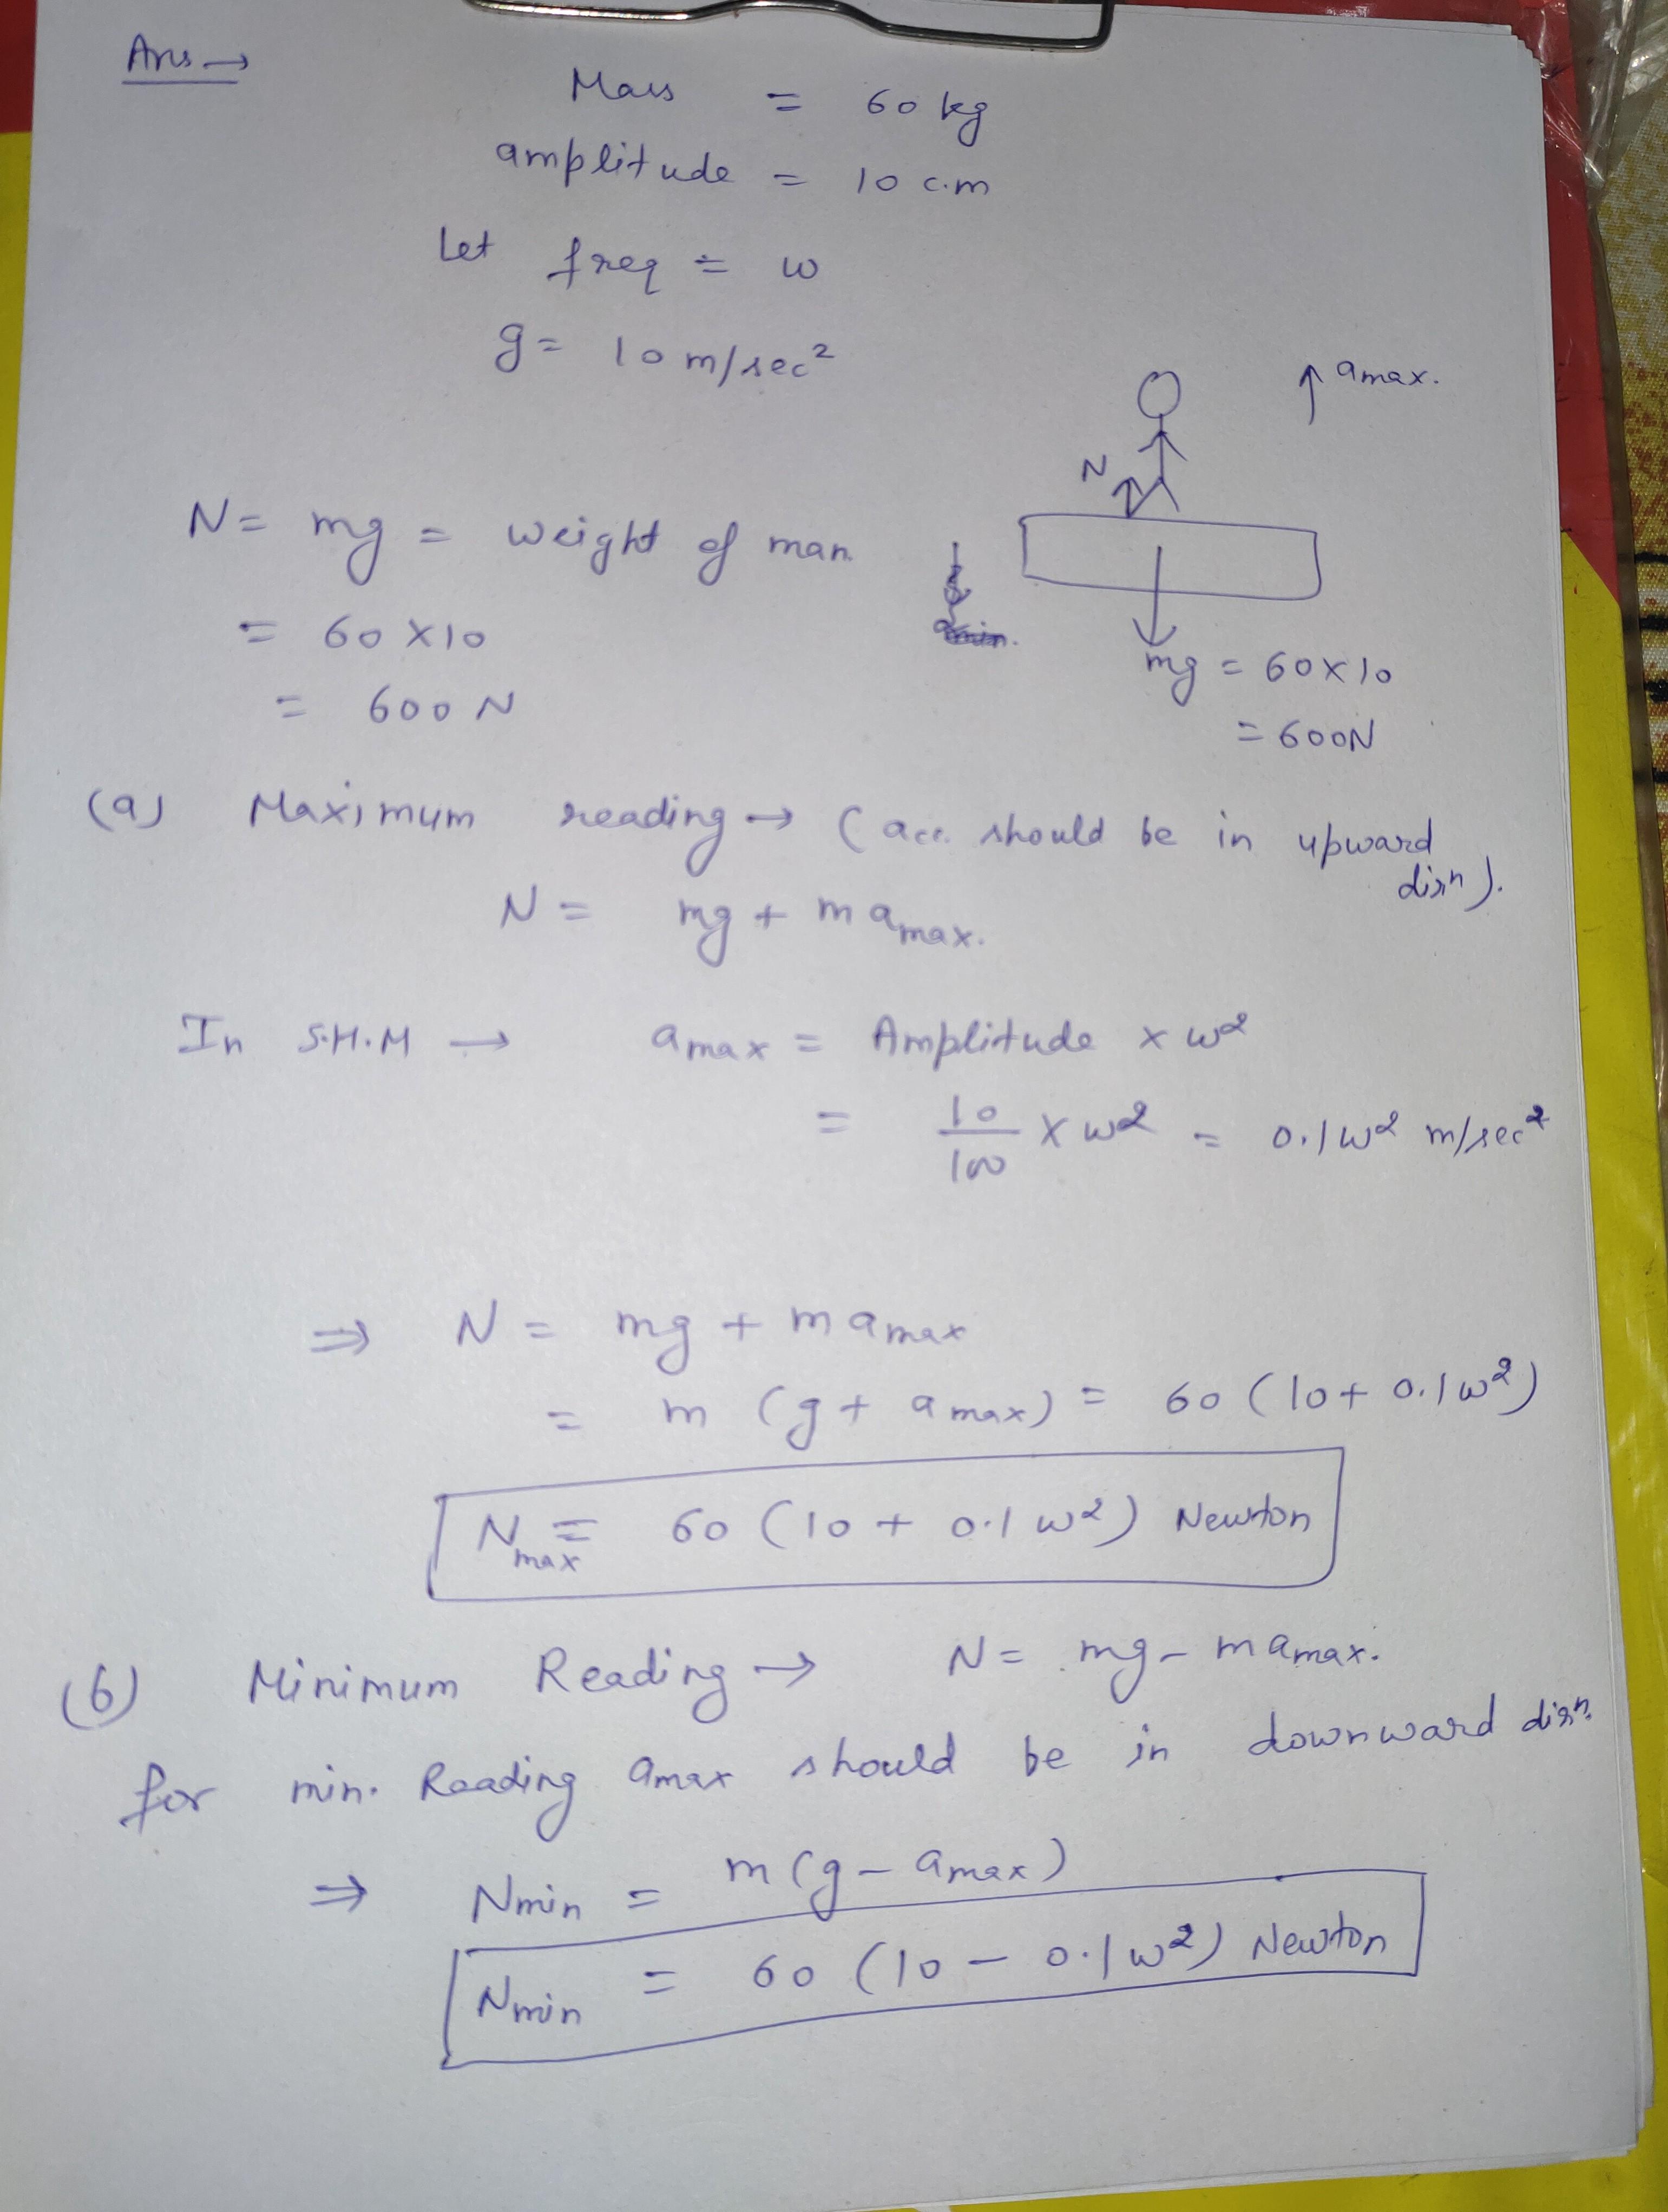 Ans →
Mass = 60 kg
amplitude = 10 c.m
Let freq = w
g = 10 m/sec²
↑ amax.
N
N = mg = weight of man
= 60 X 10
= 600 N
mg = 60 x 10
= 600N
(a) Maximum reading → (acc. should be in upward
dirn).
N = mg + m amax.
In S.H.M → amax = Amplitude x w²
= 10/100 X w² = 0.1w² m/sec²
⇒ N = mg + m amax
= m (g + amax) = 60 (10 + 0.1w²)
Nmax = 60 (10 + 0.1 w²) Newton
(b) Minimum Reading → N = mg - m amax.
for min. Reading amax should be in downward dirn.
⇒ Nmin = m(g - amax)
Nmin = 60 (10 - 0.1w²) Newton